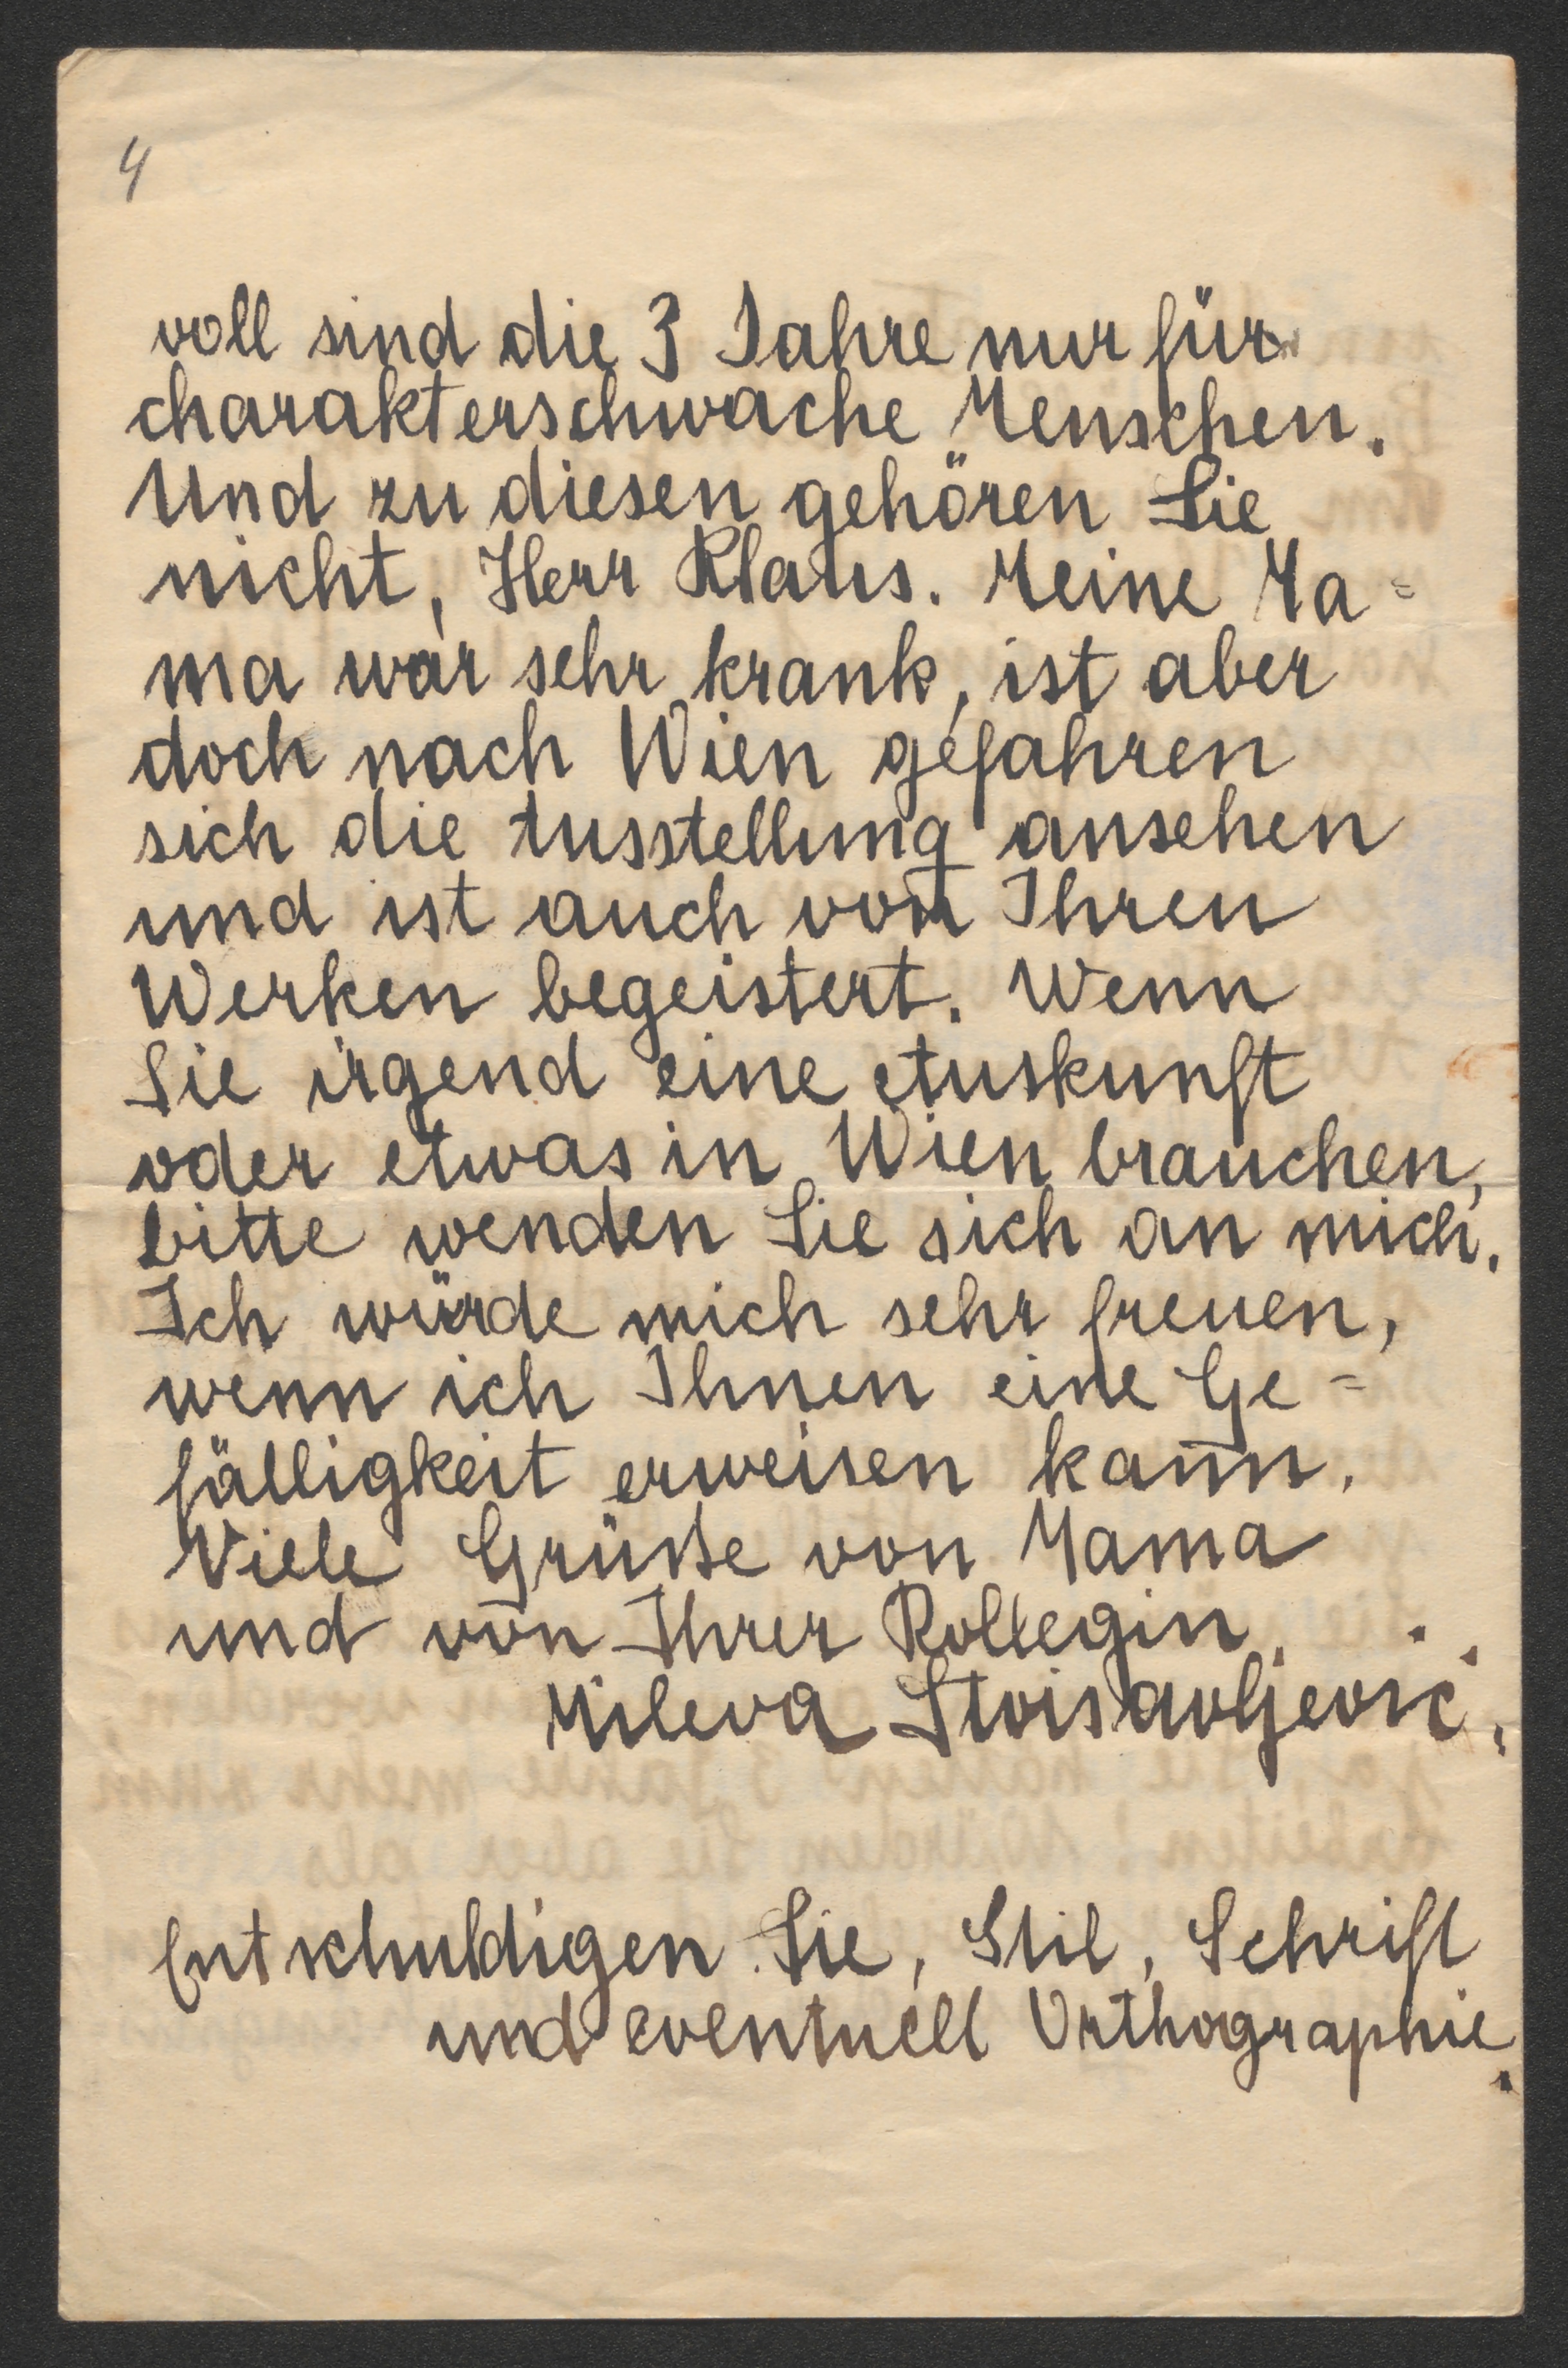 4
voll sind die 3 Jahre nur für
charakterschwache Menschen.
Und zu diesen gehören Sie
nicht, Herr Klaus. Meine Ma=
ma war sehr krank, ist aber
doch nach Wien gefahren
sich die Ausstellung ansehen
und ist auch von Ihren
Werken begeistert. Wenn
Sie irgend eine Auskunft
oder etwas in Wien brauchen,
bitte wenden Sie sich an mich.
Ich würde mich sehr freuen,
wenn ich Ihnen eine Ge=
fälligkeit erweisen kann.
Viele Grüße von Mama
und von Ihrer Kollegin
Mileva Stoisavljević.
Entschuldigen Sie, Stil, Schrift
und eventuell Orthographie.